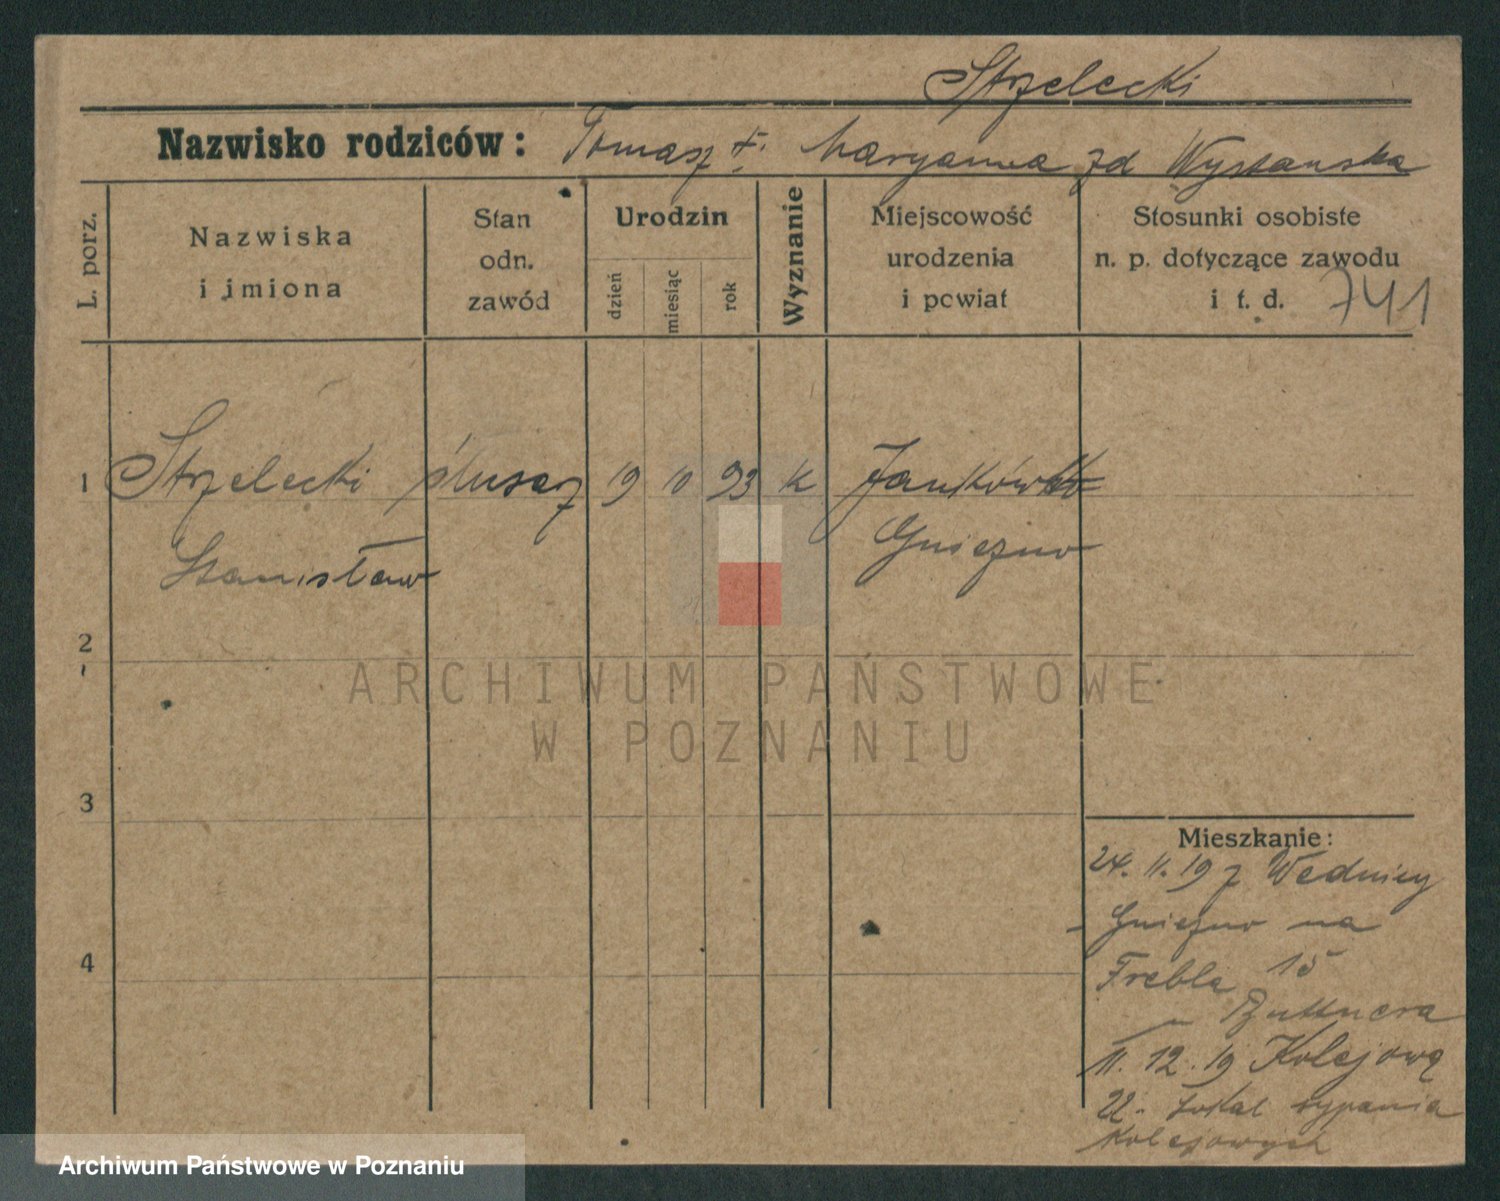 Strzelecki
Nazwisko rodziców: Tomasz †. Maryanna zd Wysłanska
L. porz.
Nazwiska
i imiona
Stan
odn.
zawód
Urodzin
dzień
miesiąc
rok
Wyznanie
Miejscowość
urodzenia
i powiat
Stosunki osobiste
n. p. dotyczące zawodu
i t. d. 741
1 Strzelecki ślusarz 19 10 93 k Jankówko
Stanisław Gniezno
2
ARCHIWUM PAŃSTWOWE
W POZNANIU
3
Mieszkanie:
24. 11. 19 z Wednicy
Gniezno na
4
Frebla 15
11. 12. 19 Kolejową
22. Lokal
Kolejowych
Archiwum Państwowe w Poznaniu